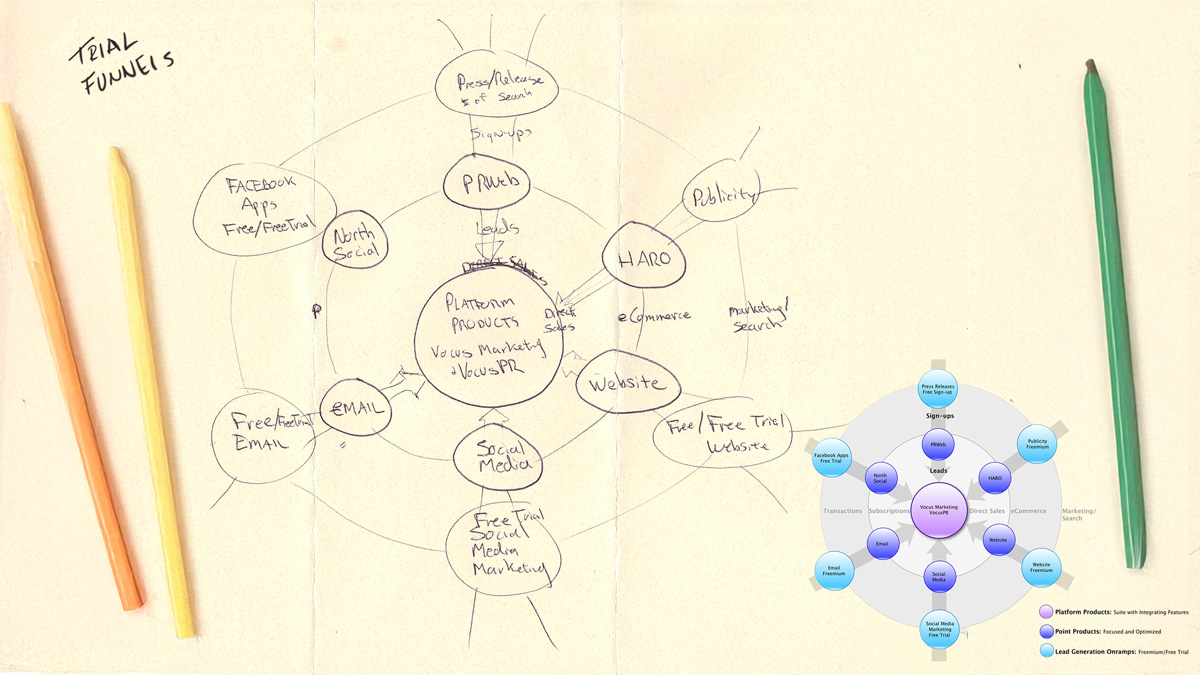 TRIAL
FUNNELS
Press/Release
of Search
Sign-ups
PRWeb
Leads
FACEBOOK
Apps
Free/FreeTrial
North
Social
Publicity
HARO
DIRECT SALES
PLATFORM
PRODUCTS
Vocus Marketing
+ VocusPR
Direct
Sales
eCommerce
marketing/
Search
P
Website
Free/Free Trial
Website
EMAIL
Free/FreeTrial
EMAIL
Social
Media
Free Trial
Social
Media
Marketing
Press Releases
Free Sign-up
Sign-ups
PRWeb
Leads
Publicity
Freemium
Facebook Apps
Free Trial
North
Social
HARO
Transactions
Subscriptions
Vocus Marketing
VocusPR
Direct Sales
eCommerce
Marketing/
Search
Email
Website
Email
Freemium
Website
Freemium
Social
Media
Social Media
Marketing
Free Trial
Platform Products: Suite with Integrating Features
Point Products: Focused and Optimized
Lead Generation Onramps: Freemium/Free Trial